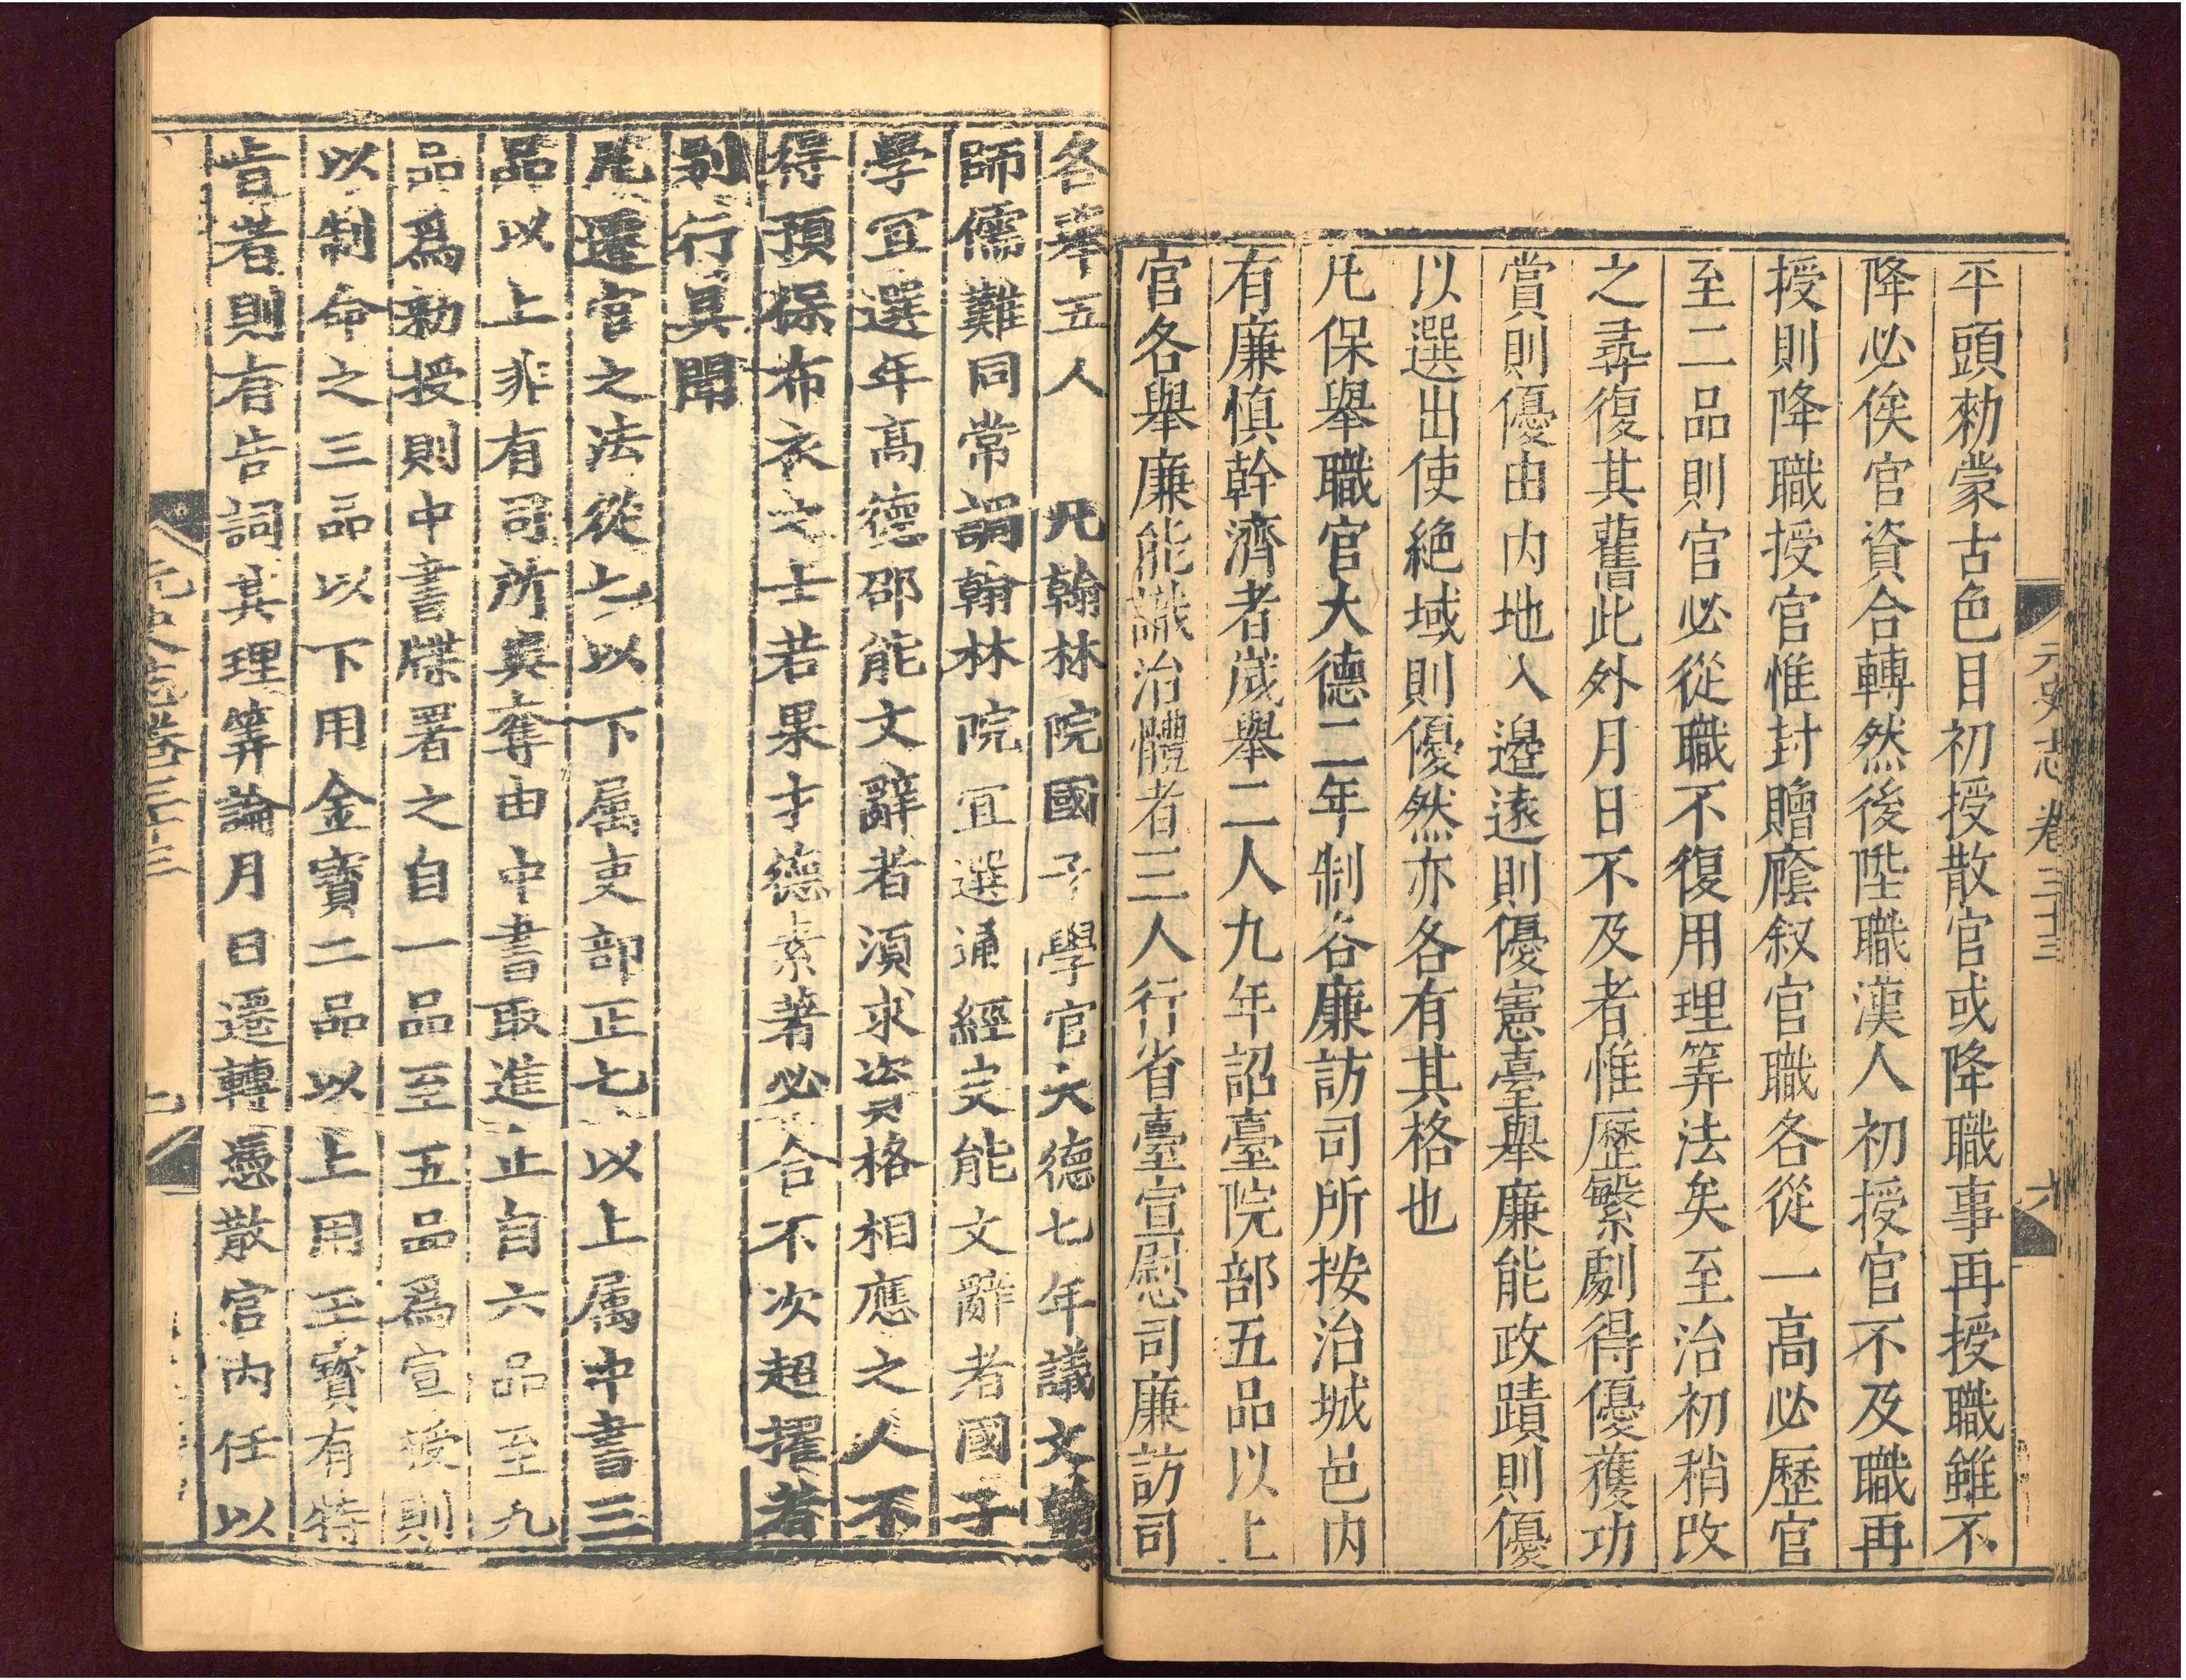 元史志卷三十三 六
平頭勑蒙古色目初授散官或降職事再授職雖不
降必俟官資合轉然後陞職漢人初授官不及職再
授則降職授官惟封贈廕叙官職各從一高必歷官
至二品則官必從職不復用理筭法矣至治初稍改
之尋復其舊此外月日不及者惟歷繁劇得優獲功
賞則優由内地入邊遠則優憲臺舉廉能政蹟則優
以選出使絶域則優然亦各有其格也
凡保舉職官大德二年制各廉訪司所按治城邑内
有廉慎幹濟者歲舉二人九年詔臺院部五品以上
官各舉廉能識治體者三人行省臺宣慰司廉訪司
各舉五人 凡翰林院國子學官大德七年議文翰
師儒難同常調翰林院宜選通經史能文辭者國子
學宜選年高德邵能文辭者須求資格相應之人不
得預保布衣之士若果才德素著必合不次超擢者
别行具聞
凡遷官之法從七以下属吏部正七以上属中書三
品以上非有司所與奪由中書取進止自六品至九
品爲勑授則中書牒署之自一品至五品爲宣授則
以制命之三品以下用金寶二品以上用玉寶有特
旨者則有告詞其理筭論月日遷轉憑散官内任以
元史志卷三十三 七